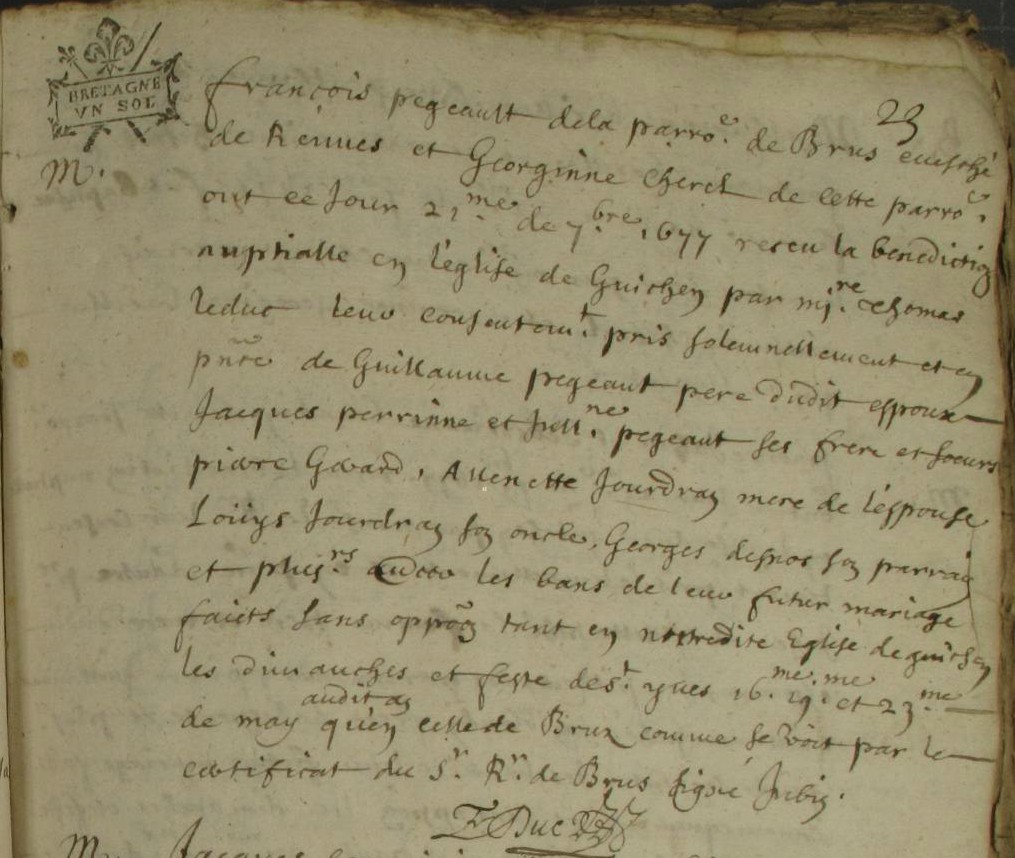 BRETAGNE
VN SOL
23
M.
françois pegeault dela parro.e de Brus euesché
de Rennes et Georginne Cherel de cette parro.e
ont ce Jour 21.me de 7.bre 1677 receu la benediction
nuptialle en l'eglise de Guichen par mj.re Thomas
leduc leur consentem.t pris solemnellement et en
pnce de Guillaume pegeaut pere dudit espoux
Jacques perrinne et Jull.ne pegeaut ses frere et soeurs
pierre Gerard, Allenette Jourdran mere de l'espouse
Loüys Jourdran son oncle, Georges desnos son parrain
et plusj.rs autres les bans de leur futur mariage
faicts sans oppoon tant en nostredite Eglise de guichen
les dimanches et feste de s.t yues 16.me 19.me et 23.me
audit an
de may qu'en celle de Bruz comme se voit par le
certificat du S.r R.r de Brus signé Jubin.
Leduc
M. Jacques